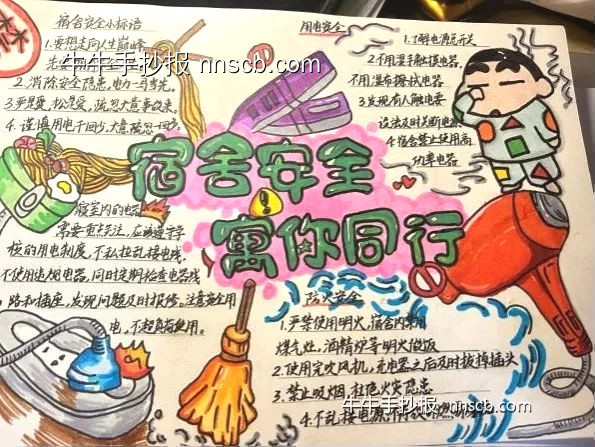 宿舍安全小标语
1.要想走向人生巅峰
2.消除安全隐患,电力一马当先。
3.严是爱,松是受,疏忽大意事故来。
4.谨慎用电千回少,大意疏忽一回多。
用电安全
1.了解电源总开关
2.不用湿手触摸电器,
不用湿布擦拭电器
3.发现有人触电要
设法及时关断电源
4.宿舍禁止使用高
功率电器
宿舍安全
寓你同行
寝室内的电器
需要重点关注,应该遵守学
校的用电制度,不私拉乱接电线
不使用违规电器,同时定期检查电器线
路和插座,发现问题及时报修,注意安全用
电,不超负荷使用。
防火安全
1.严禁使用明火,宿舍内禁用
煤气灶,酒精炉等明火做饭
2.使用完吹风机,充电器之后及时拔掉插头
3.禁止吸烟,杜绝火灾隐患
4.不乱接电源
牛牛手抄报 nnscb.com
牛牛手抄报 nnscb.com